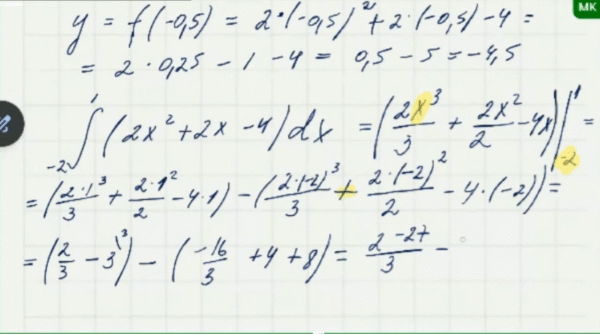 МК
y = f(-0,5) = 2·(-0,5)² + 2·(-0,5) - 4 =
= 2·0,25 - 1 - 4 = 0,5 - 5 = -4,5
∫₋₂¹ (2x² + 2x - 4) dx = (2x³/3 + 2x²/2 - 4x)|₋₂¹ =
= (2·1³/3 + 2·1²/2 - 4·1) - (2·(-2)³/3 + 2·(-2)²/2 - 4·(-2)) =
= (2/3 - 3\³) - (-16/3 + 4 + 8) = 2-27/3 -